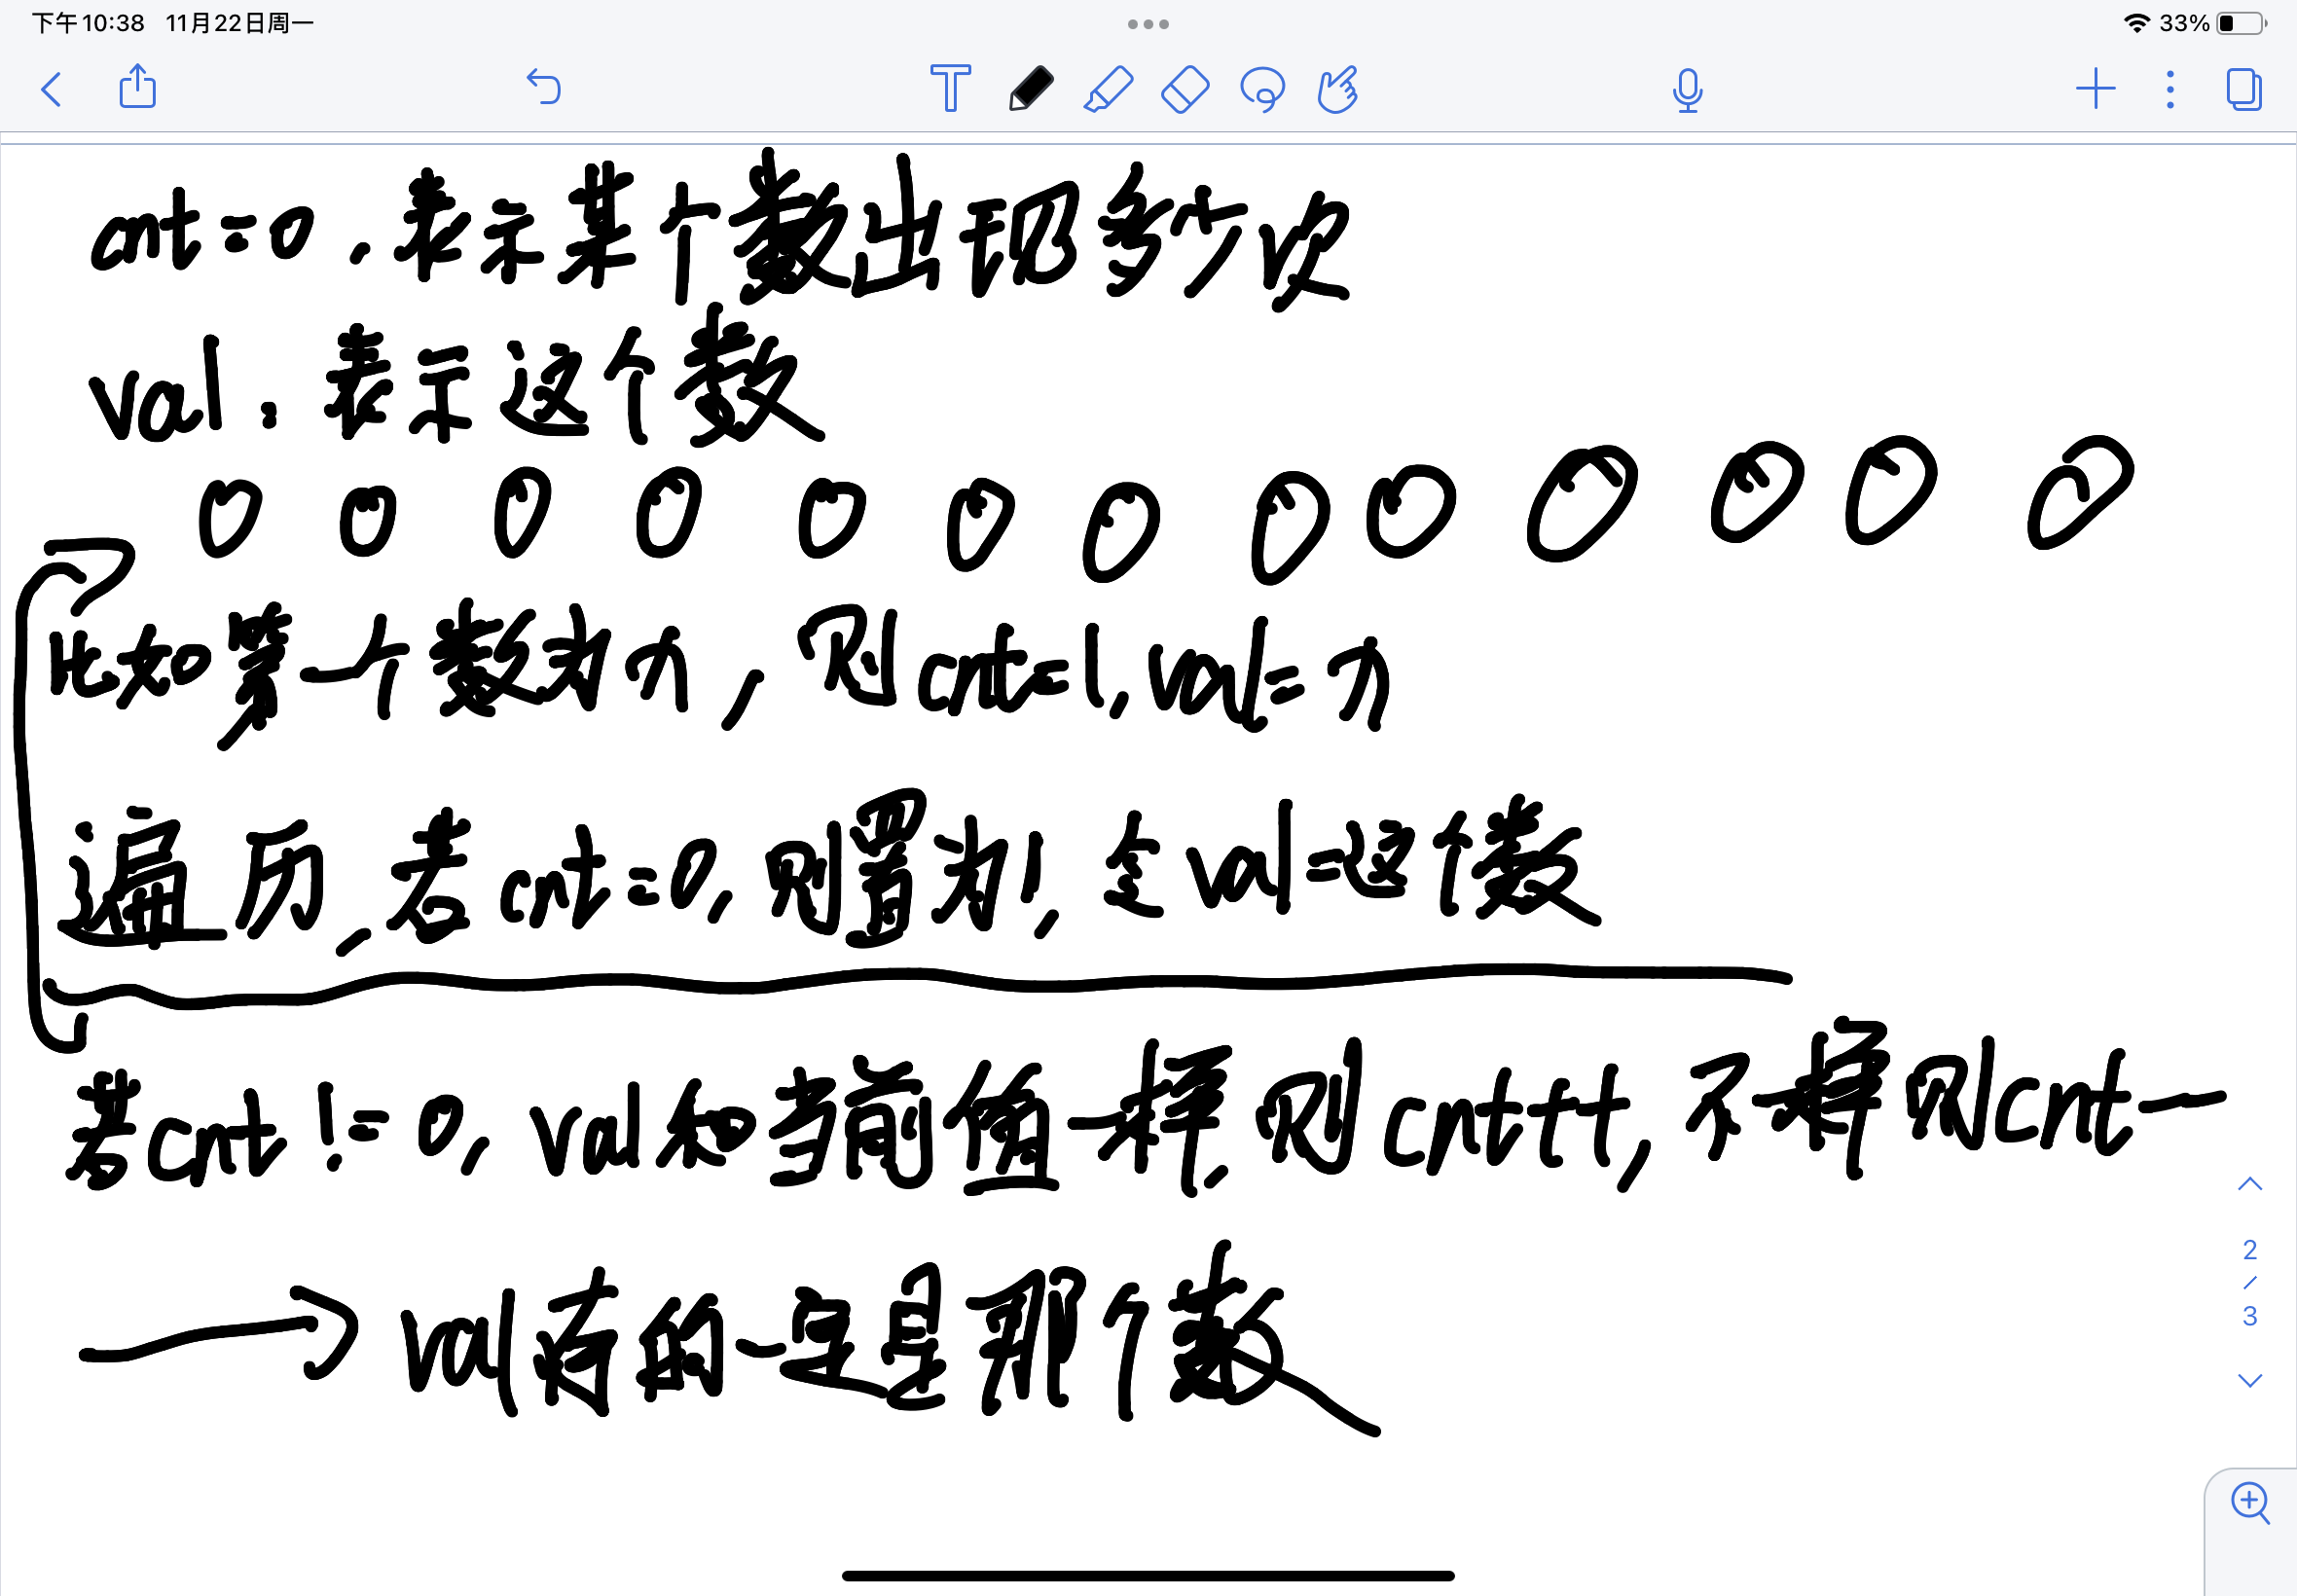 下午10:38 11月22日周一
33%
cnt=0.表示某个数出现多少次
val:表示这个数
0 0 0 0 0 0 0 0 0 0 0 0 0
比如第一个数为n,则cnt=1,val=n
遍历,若cnt=0,则置为1,令val=这个数
若cnt!=0,val和当前值一样,则cnt++,不一样则cnt--
→val存的一定是那个数
2
/
3